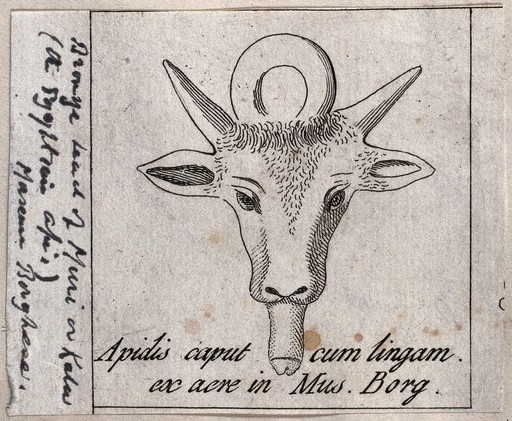 Bronze head of or
Egyptian apis)
Museum Borghese.
Apidis caput cum lingam.
ex aere in Mus. Borg.